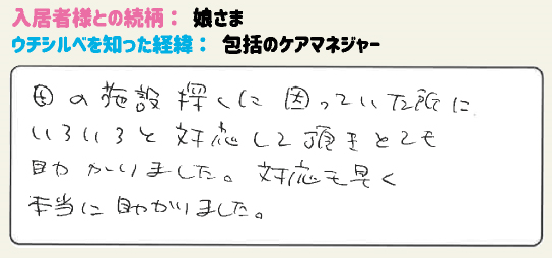 入居者様との続柄： 娘さま
ウチシルベを知った経緯： 包括のケアマネジャー
母の施設探しに困っていた所に
いろいろと対応して頂きとても
助かりました。対応も早く
本当に助かりました。